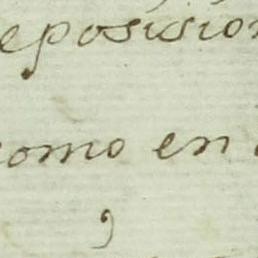 eposision
como en
,